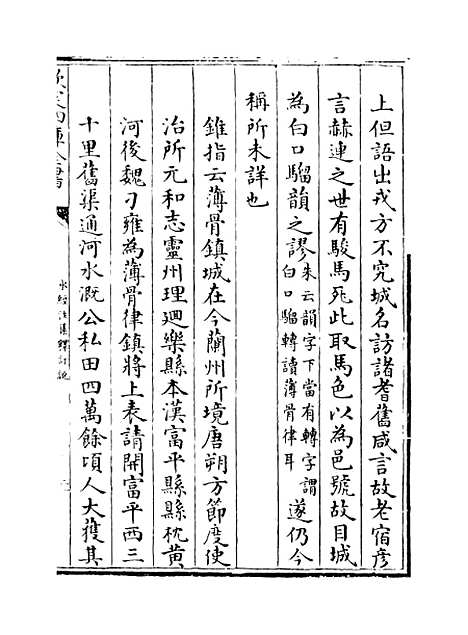 上但語出戎方不究城名訪諸耆舊咸言故老宿彦
言赫連之世有駿馬死此取馬色以為邑號故目城
為白口騮韻之謬朱云韻字下當有轉字謂白口騮轉讀薄骨律耳遂仍今
稱所未詳也
錐指云薄骨鎮城在今蘭州所境唐朔方節度使
治所元和志靈州理迴樂縣本漢富平縣縣枕黄
河後魏刁雍為薄骨律鎮將上表請開富平西三
十里舊渠通河水溉公私田四萬餘頃人大獲其
欽定四庫全書
水經注集釋訂訛